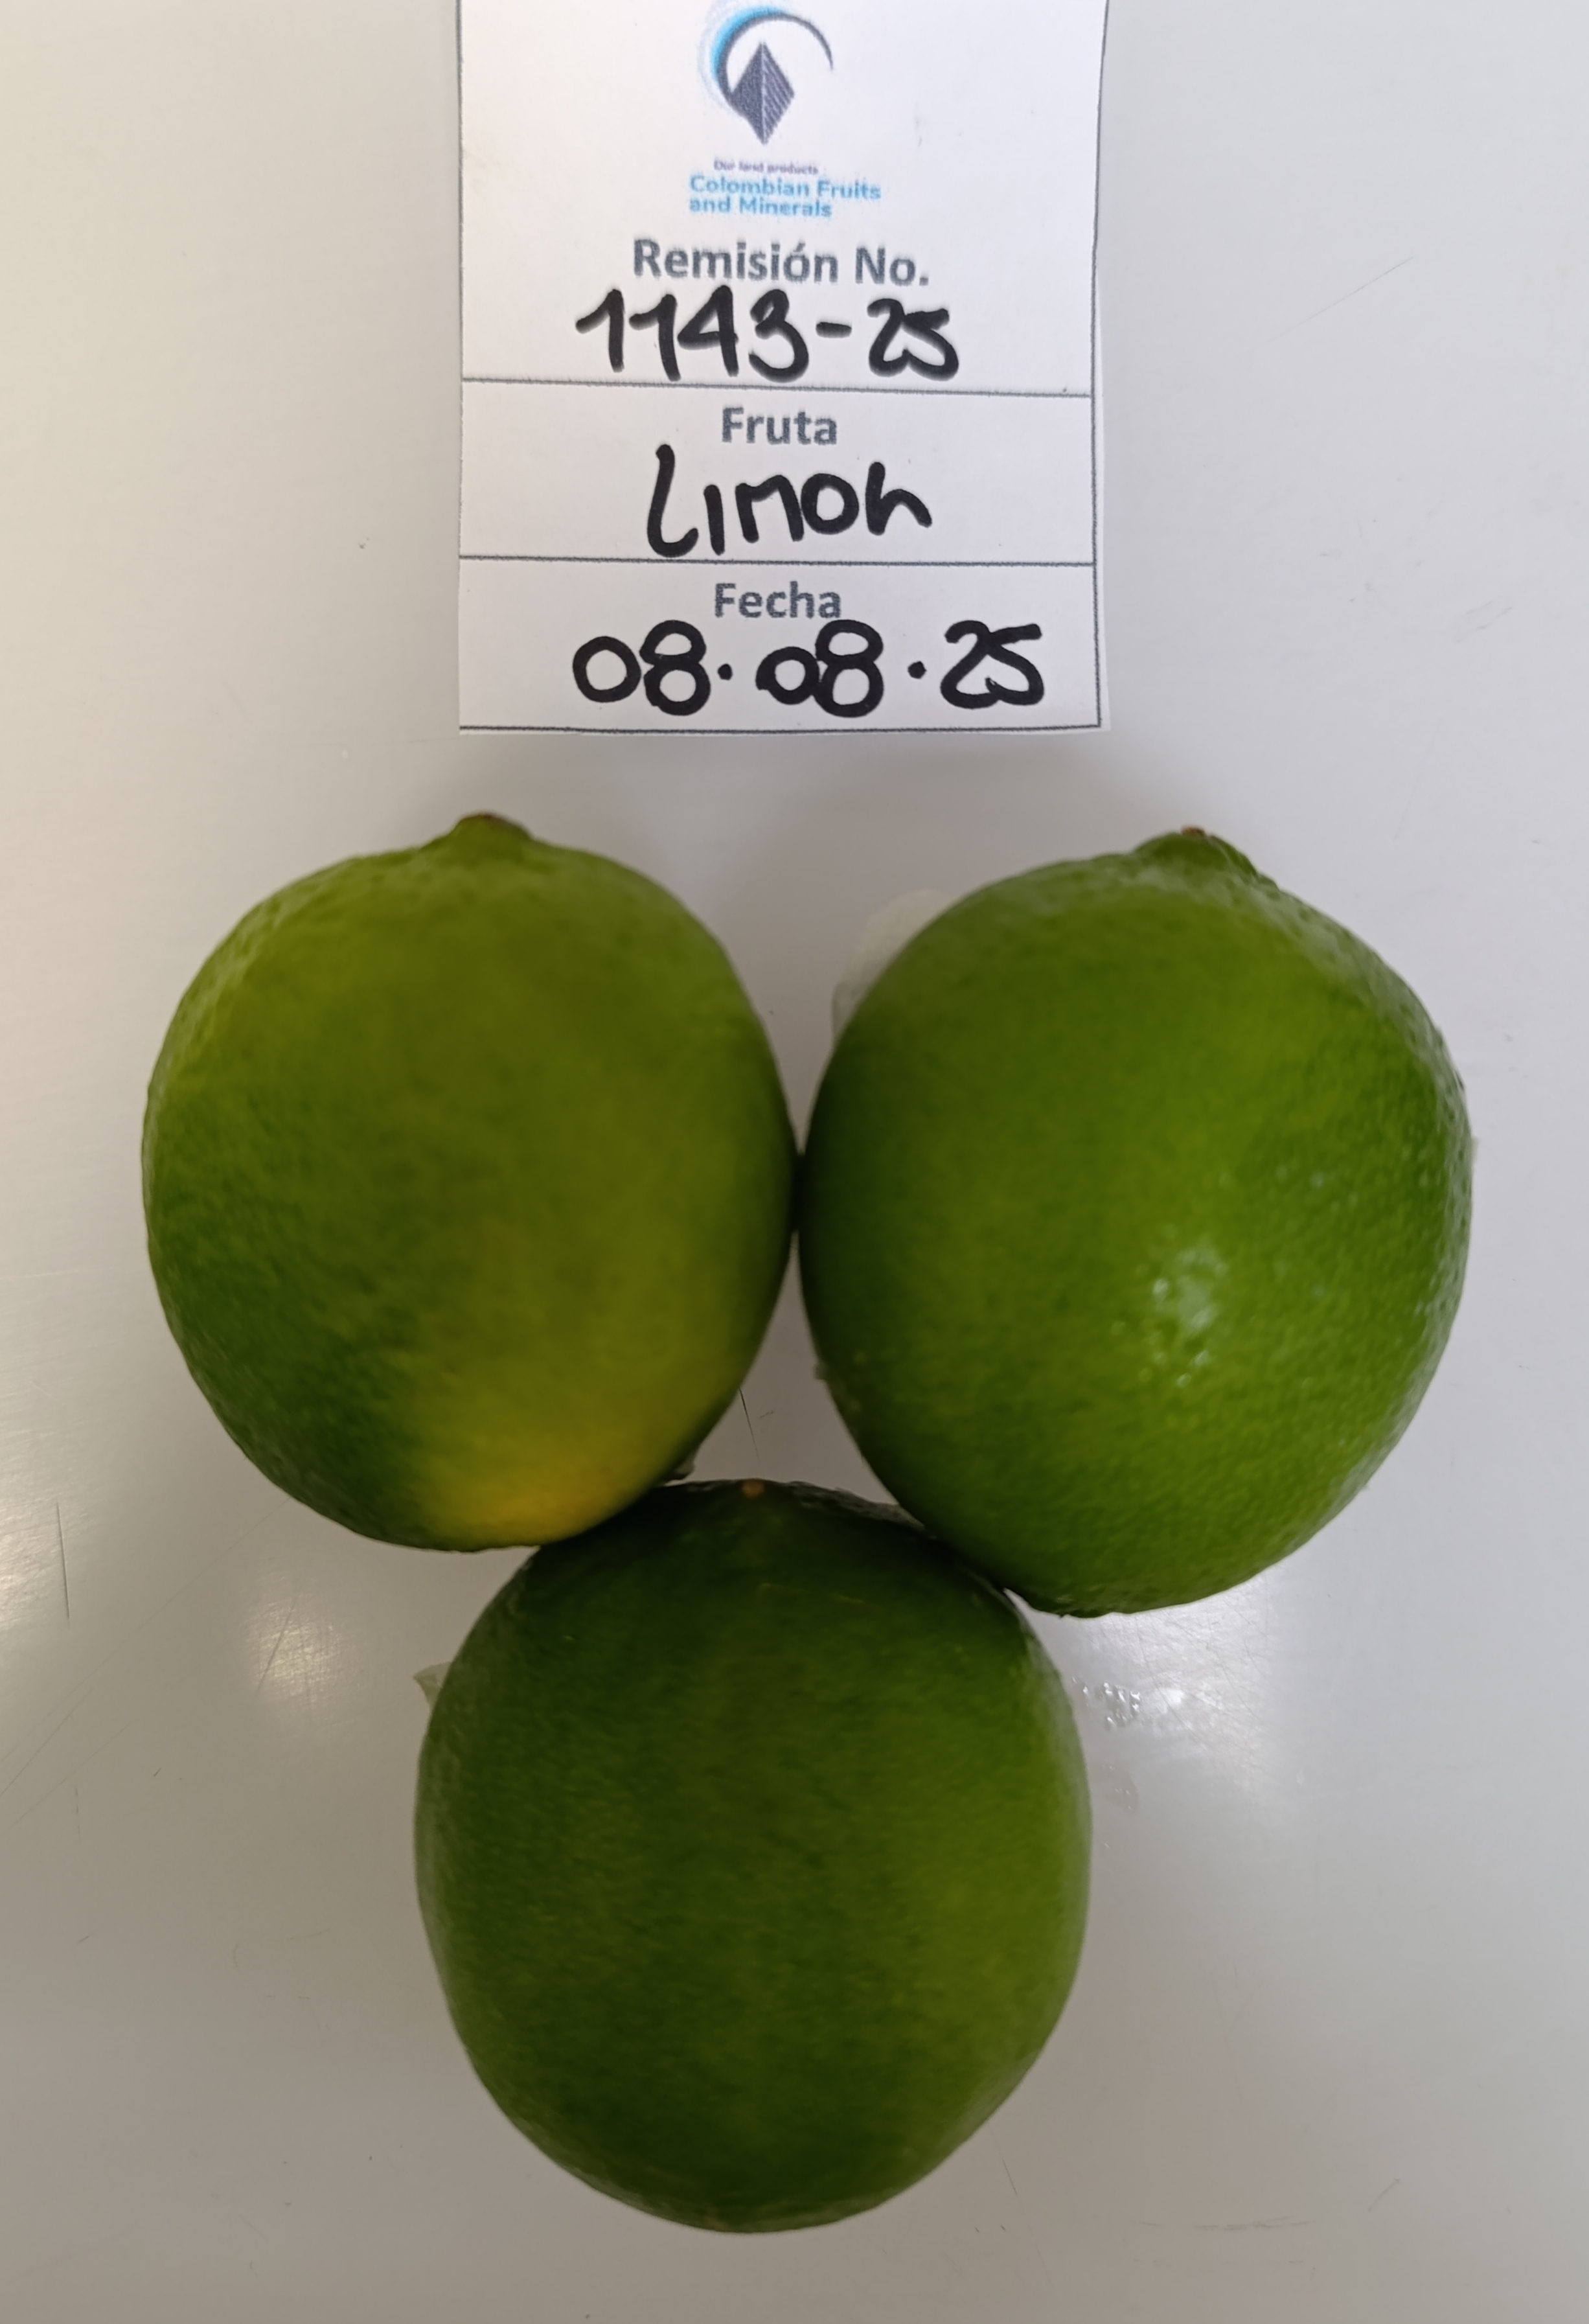 Our land products
Colombian Fruits
and Minerals
Remisión No.
1143-25
Fruta
Limon
Fecha
08.08.25